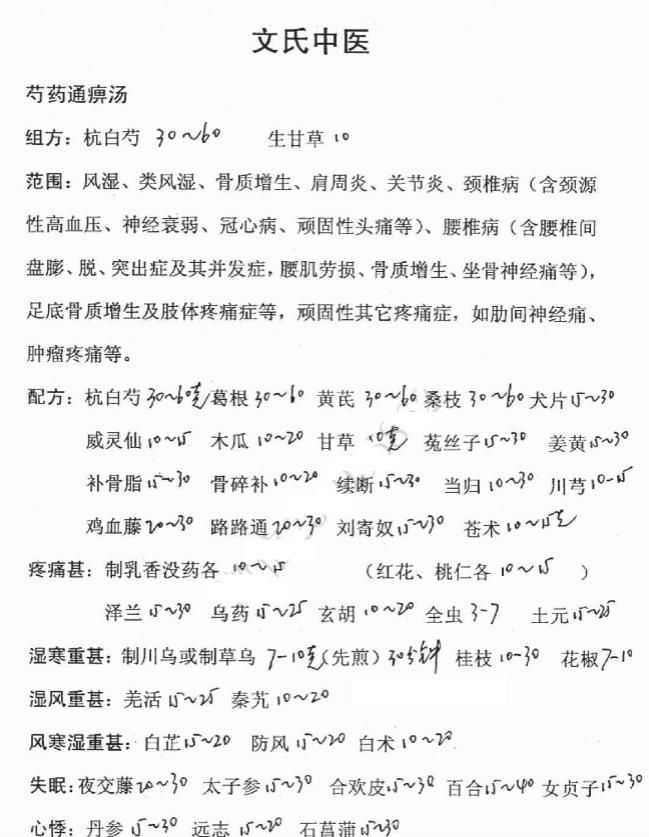 文氏中医
芍药通痹汤
组方：杭白芍 30~60 生甘草 10
范围：风湿、类风湿、骨质增生、肩周炎、关节炎、颈椎病（含颈源
性高血压、神经衰弱、冠心病、顽固性头痛等）、腰椎病（含腰椎间
盘膨、脱、突出症及其并发症，腰肌劳损、骨质增生、坐骨神经痛等），
足底骨质增生及肢体疼痛症等，顽固性其它疼痛症，如肋间神经痛、
肿瘤疼痛等。
配方：杭白芍 30~60克 葛根 30~60 黄芪 30~60 桑枝 30~60 犬片 15~30
威灵仙 10~15 木瓜 10~20 甘草 10克 菟丝子 15~30 姜黄 15~30
补骨脂 15~30 骨碎补 10~20 续断 15~30 当归 10~30 川芎 10-15
鸡血藤 20~30 路路通 20~30 刘寄奴 15~30 苍术 10~15克
疼痛甚：制乳香没药各 10~15 （红花、桃仁各 10~15 ）
泽兰 15~30 乌药 15~25 玄胡 10~20 全虫 3-7 土元 15~25
湿寒重甚：制川乌或制草乌 7-10克（先煎）30分钟 桂枝 10-30 花椒 7-10
湿风重甚：羌活 15~25 秦艽 10~20
风寒湿重甚：白芷 15~20 防风 15~20 白术 10~20
失眠：夜交藤 20~30 太子参 15~30 合欢皮 15~30 百合 15~40 女贞子 15~30
心悸：丹参 15~30 远志 15~20 石菖蒲 15~30